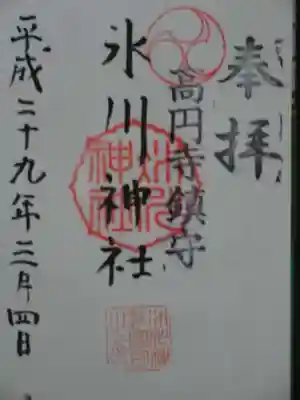 奉拝
高円寺鎮守
氷川神社
平成二十九年三月四日